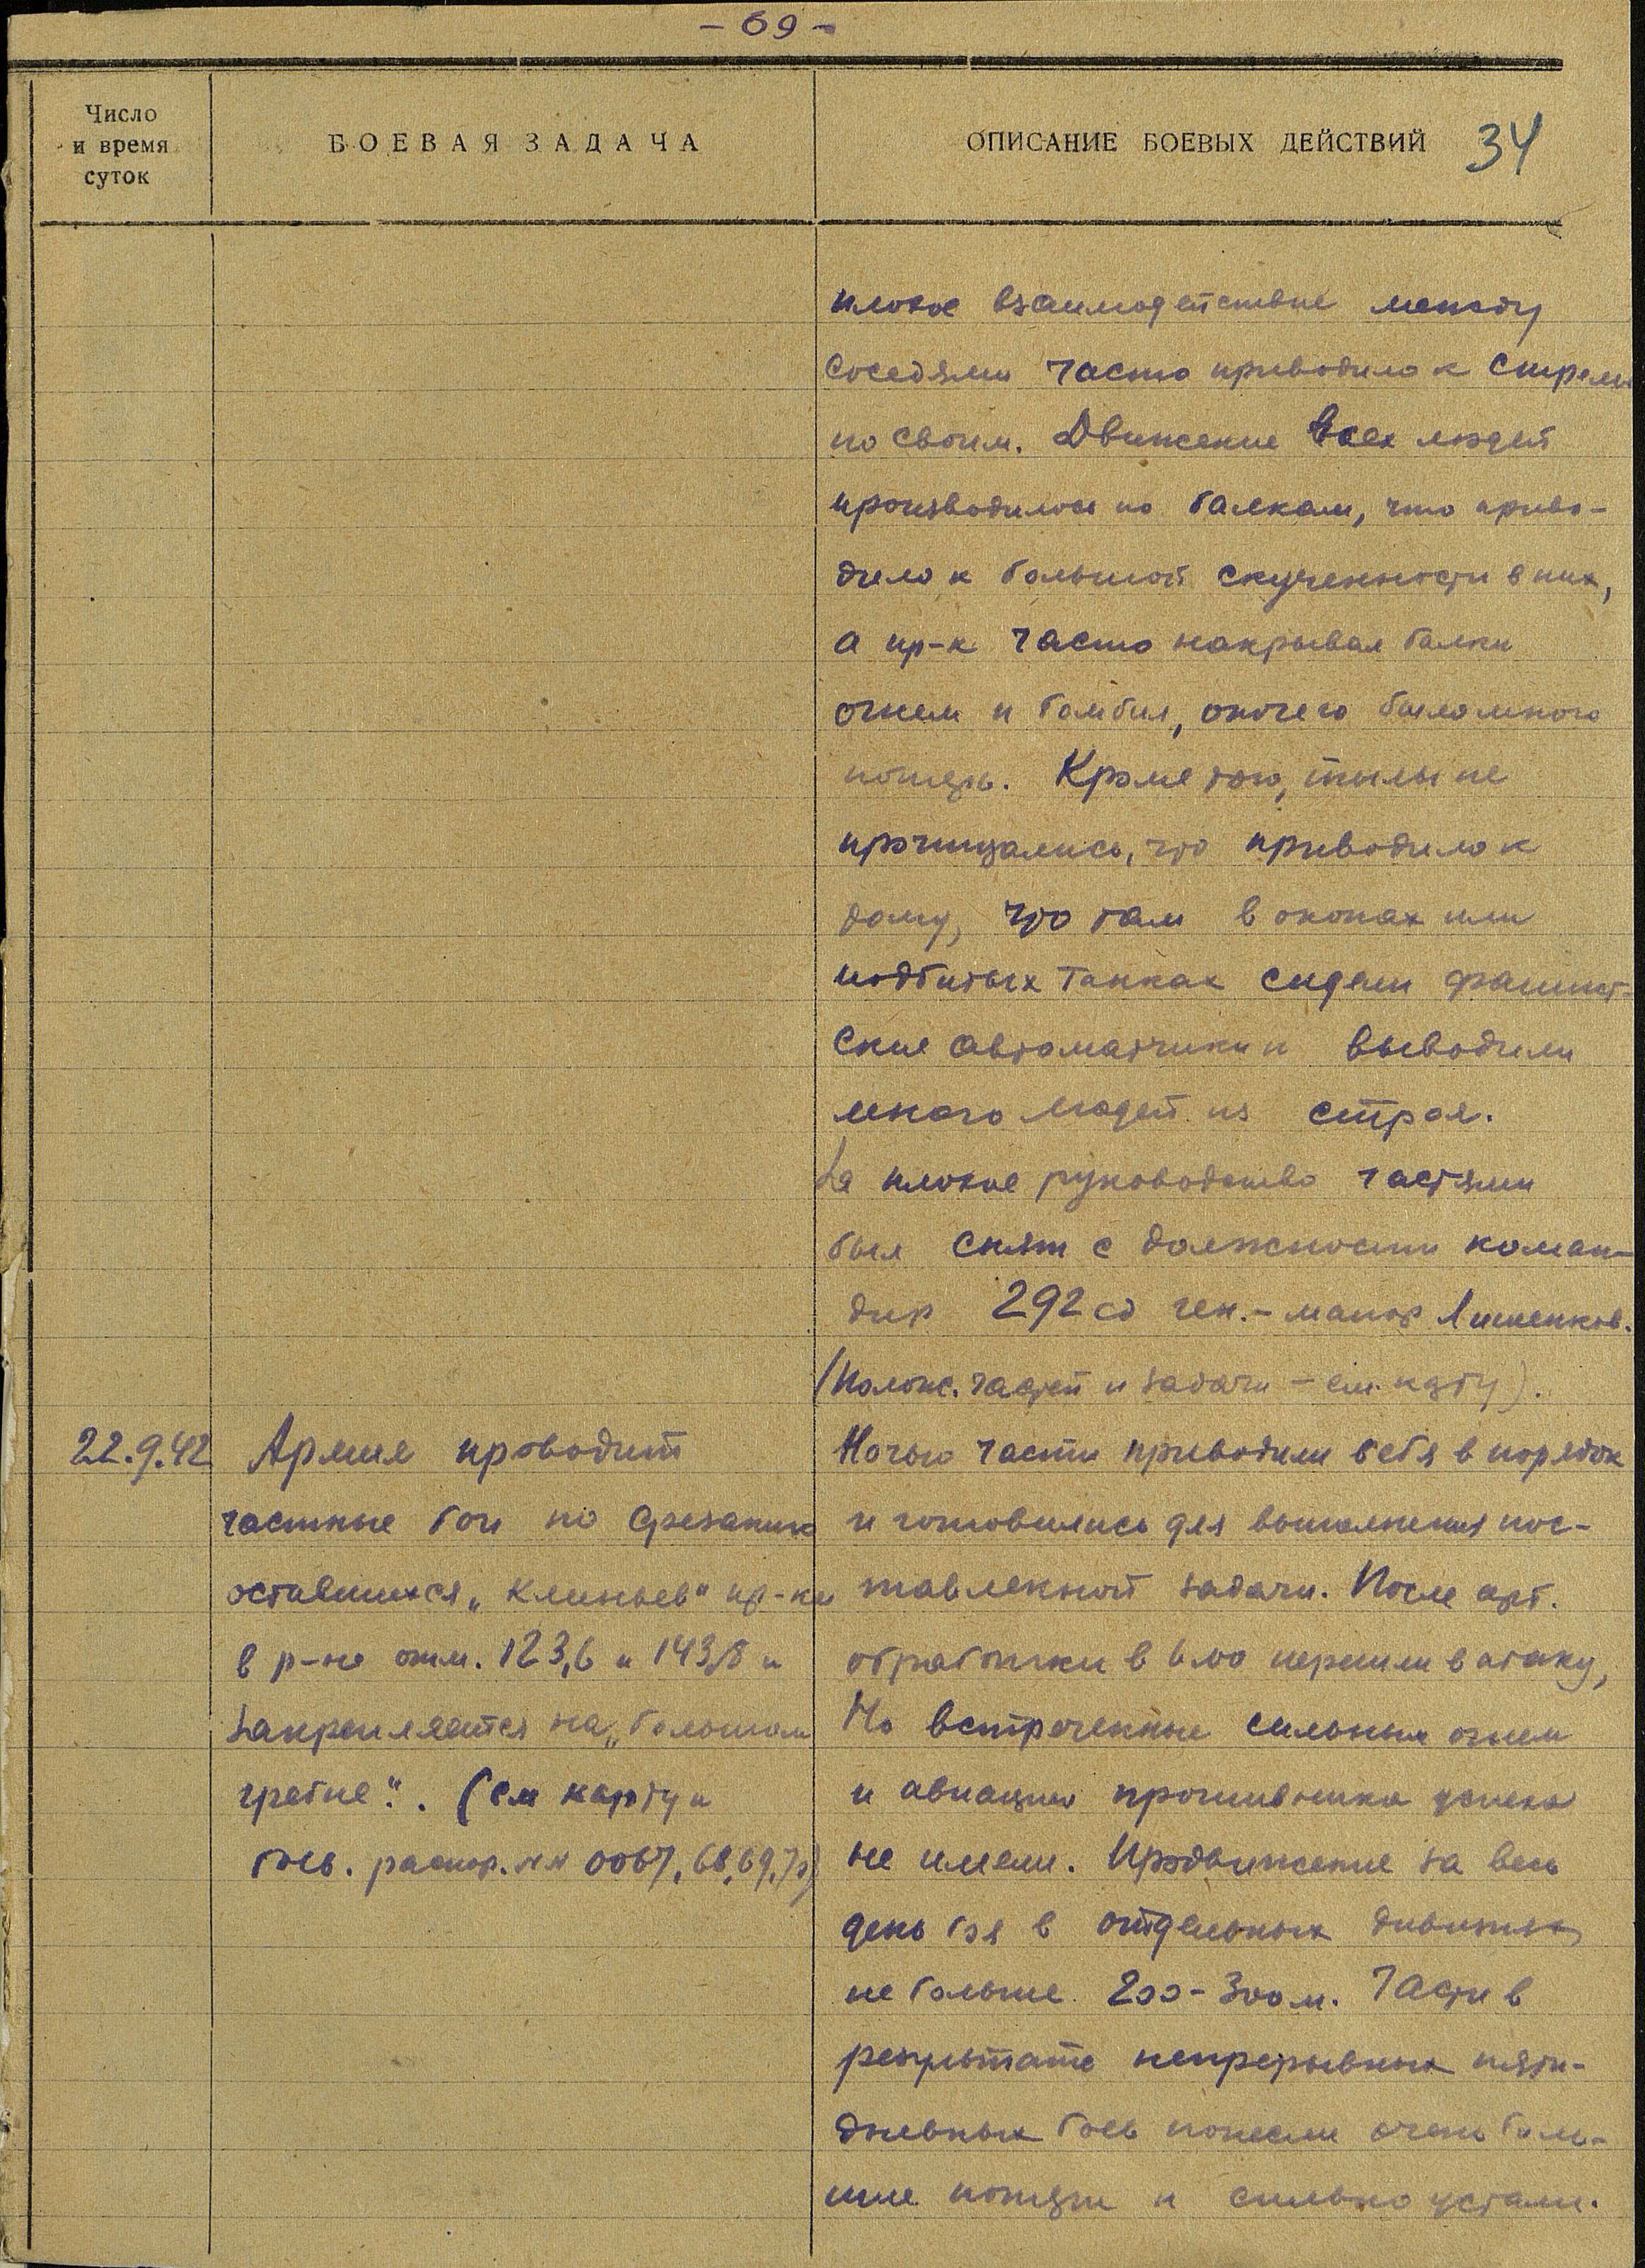 - 69 -
Число
и время
суток
БОЕВАЯ ЗАДАЧА
ОПИСАНИЕ БОЕВЫХ ДЕЙСТВИЙ
34
плохое взаимодействие между
соседями часто приводило к стрельб
по своим. Движение всех людей
производилось по балкам, что приво-
дило к большой скученности в них,
а пр-к часто накрывал балки
огнем и бомбил, отчего было много
потерь. Кроме того, тылы не
прочищались, что приводило к
тому, что там в окопах или
подбитых танках сидели фашист-
ские автоматчики и выводили
много людей из строя.
За плохое руководство частями
был снят с должности коман-
дир 292 сд ген.-майор Лименков.
(Полож. частей и задачи - см. карту).
22.9.42
Армия проводит
частные бои по срезанию
оставшихся „клиньев" пр-ка
в р-не отм. 123,6 и 143,8 и
закрепляется на „большом
гребне". (см карту и
боев. распор. №№ 0067, 68, 69, 70)
Ночью части приводили себя в порядок
и готовились для выполнения пос-
тавленной задачи. После арт.
обработки в 6.00 перешли в атаку,
Но встреченные сильным огнем
и авиацией противника успеха
не имели. Продвижение за весь
день боя в отдельных дивизиях
не больше 200-300 м. Части в
результате непрерывных пяти-
дневных боев понесли очень боль-
шие потери и сильно устали.